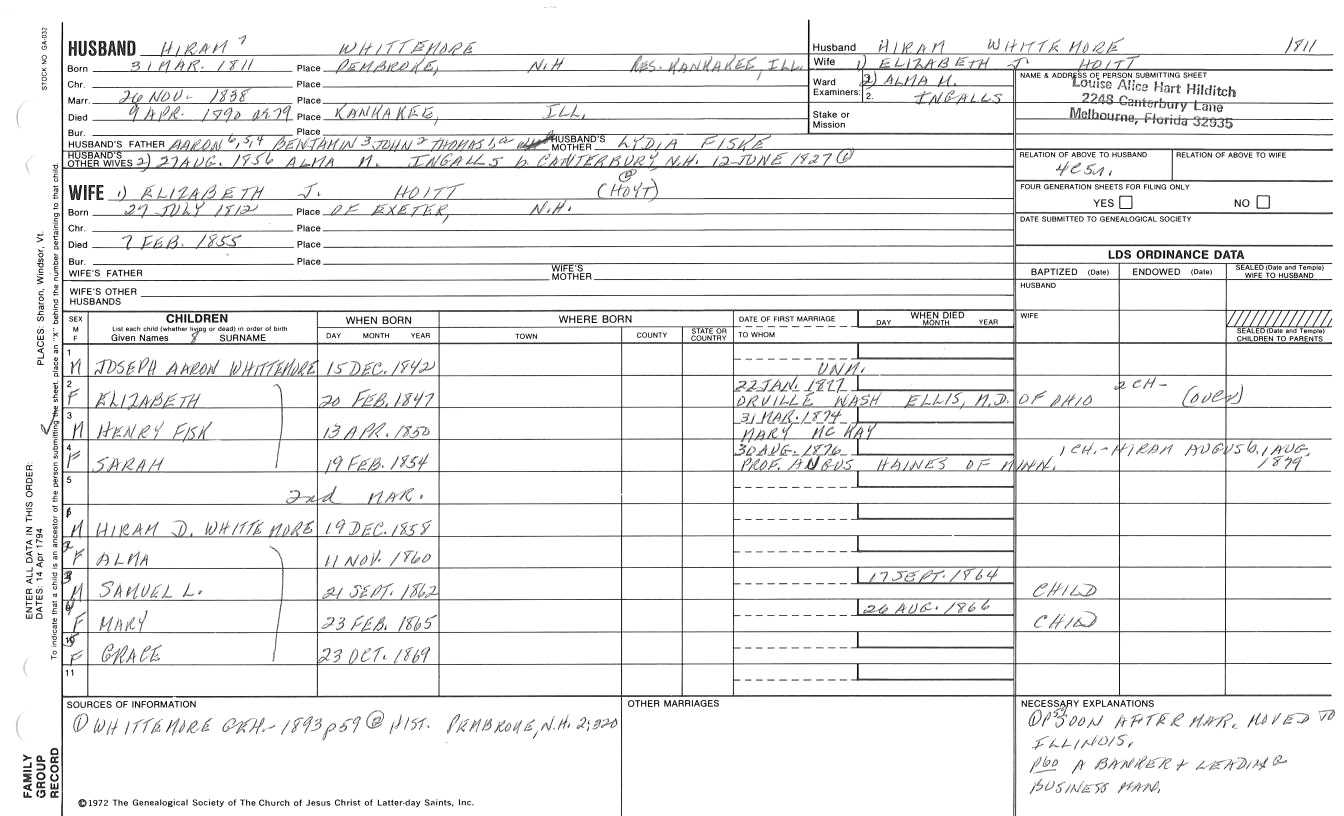 STOCK NO GA-032
HUSBAND HIRAM 7 WHITTEMORE
Born 31 MAR. 1811 Place PEMBROKE, N.H RES. KANKAKEE, ILL.
Chr. Place
Marr. 26 NOV. 1838 Place
Died 9 APR. 1890 AE 79 Place KANKAKEE, ILL.
Bur. Place
HUSBAND'S FATHER AARON 6,5,4 BENJAMIN 3 JOHN 2 THOMAS 1,a HUSBAND'S MOTHER LYDIA FISKE
HUSBAND'S OTHER WIVES 2) 27 AUG. 1856 ALMA M. INGALLS b. CANTERBURY N.H. 12 JUNE 1827 ②
Husband HIRAM WHITTEMORE 1811
Wife 1) ELIZABETH J. HOITT
Ward 2) ALMA M.
Examiners: 2. INGALLS
Stake or
Mission
NAME & ADDRESS OF PERSON SUBMITTING SHEET
Louise Alice Hart Hilditch
2248 Canterbury Lane
Melbourne, Florida 32935
RELATION OF ABOVE TO HUSBAND RELATION OF ABOVE TO WIFE
4C5r.
FOUR GENERATION SHEETS FOR FILING ONLY
YES NO
DATE SUBMITTED TO GENEALOGICAL SOCIETY
WIFE 1) ELIZABETH J. HOITT (HOYT) ②
Born 27 JULY 1812 Place OF EXETER, N.H.
Chr. Place
Died 7 FEB. 1855 Place
Bur. Place
WIFE'S FATHER WIFE'S MOTHER
WIFE'S OTHER HUSBANDS
LDS ORDINANCE DATA
BAPTIZED (Date) ENDOWED (Date) SEALED (Date and Temple) WIFE TO HUSBAND
HUSBAND
WIFE
SEALED (Date and Temple) CHILDREN TO PARENTS
SEX M F CHILDREN WHEN BORN WHERE BORN DATE OF FIRST MARRIAGE WHEN DIED
List each child (whether living or dead) in order of birth
Given Names 8 SURNAME DAY MONTH YEAR TOWN COUNTY STATE OR COUNTRY TO WHOM DAY MONTH YEAR
1 M JOSEPH AARON WHITTEMORE 15 DEC. 1842 UNM.
2 F ELIZABETH 20 FEB. 1847 22 JAN. 1877 ORVILLE WASH ELLIS, M.D. OF OHIO 2 CH- (OVER)
3 M HENRY FISK 13 APR. 1850 31 MAR. 1874 MARY MC KAY
4 F SARAH 19 FEB. 1854 30 AUG. 1876 PROF. ANGUS HAINES OF MINN. 1 CH.- HIRAM AUGUS b. 1 AUG. 1879
5 2nd MAR.
6 M HIRAM D. WHITTEMORE 19 DEC. 1858
7 F ALMA 11 NOV. 1860
8 M SAMUEL L. 21 SEPT. 1862 17 SEPT. 1864 CHILD
9 F MARY 23 FEB. 1865 26 AUG. 1866 CHILD
10 F GRACE 23 OCT. 1869
11
SOURCES OF INFORMATION
① WHITTEMORE GEN.- 1893 p59 ② HIST. PEMBROKE, N.H. 2:320
OTHER MARRIAGES
NECESSARY EXPLANATIONS
① P59 SOON AFTER MAR. MOVED TO
ILLINOIS.
p60 A BANKER + LEADING
BUSINESS MAN.
©1972 The Genealogical Society of The Church of Jesus Christ of Latter-day Saints, Inc.
PLACES: Sharon, Windsor, Vt.
ENTER ALL DATA IN THIS ORDER:
DATES: 14 Apr 1794
To indicate that a child is an ancestor of the person submitting the sheet, place an "x" behind the number pertaining to that child.
FAMILY
GROUP
RECORD